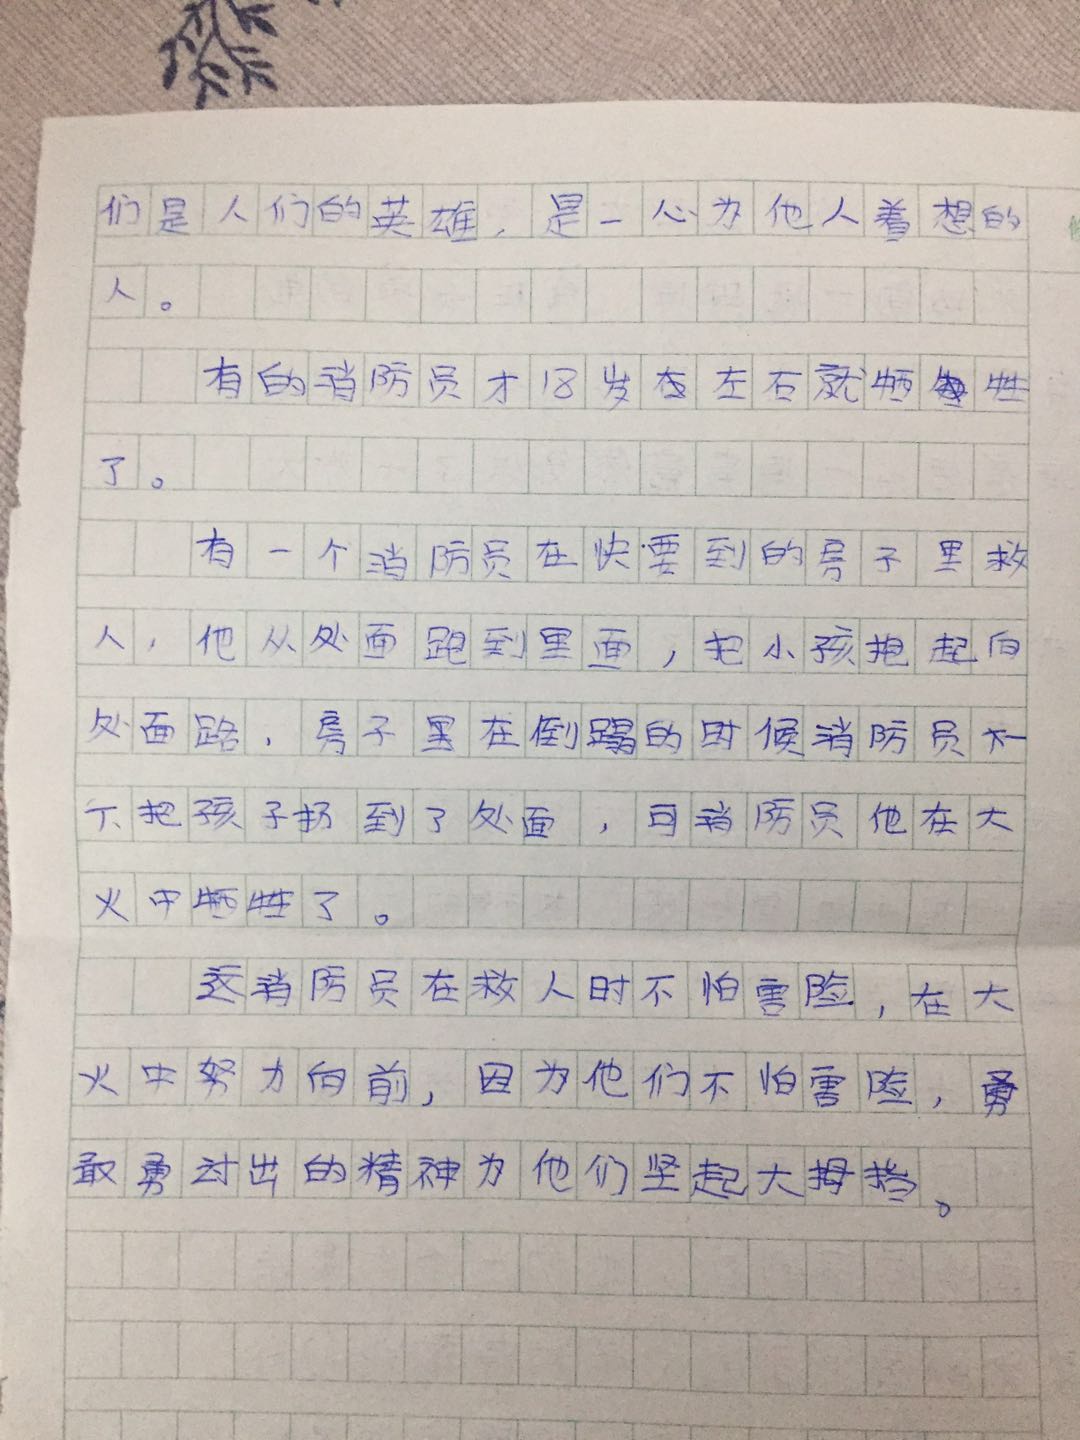 们是人们的英雄，是一心为他人着想的
人。
有的消防员才18岁在左右就牺牲
了。
有一个消防员在快要到的房子里救
人，他从处面跑到里面，把小孩抱起向
处面路，房子里在倒蹋的时候消防员不一
个把孩子扔到了处面，可消防员他在大
火中牺牲了。
这消防员在救人时不怕害险，在大
火中努力向前，因为他们不怕害险，勇
敢勇过出的精神为他们坚起大拇指。